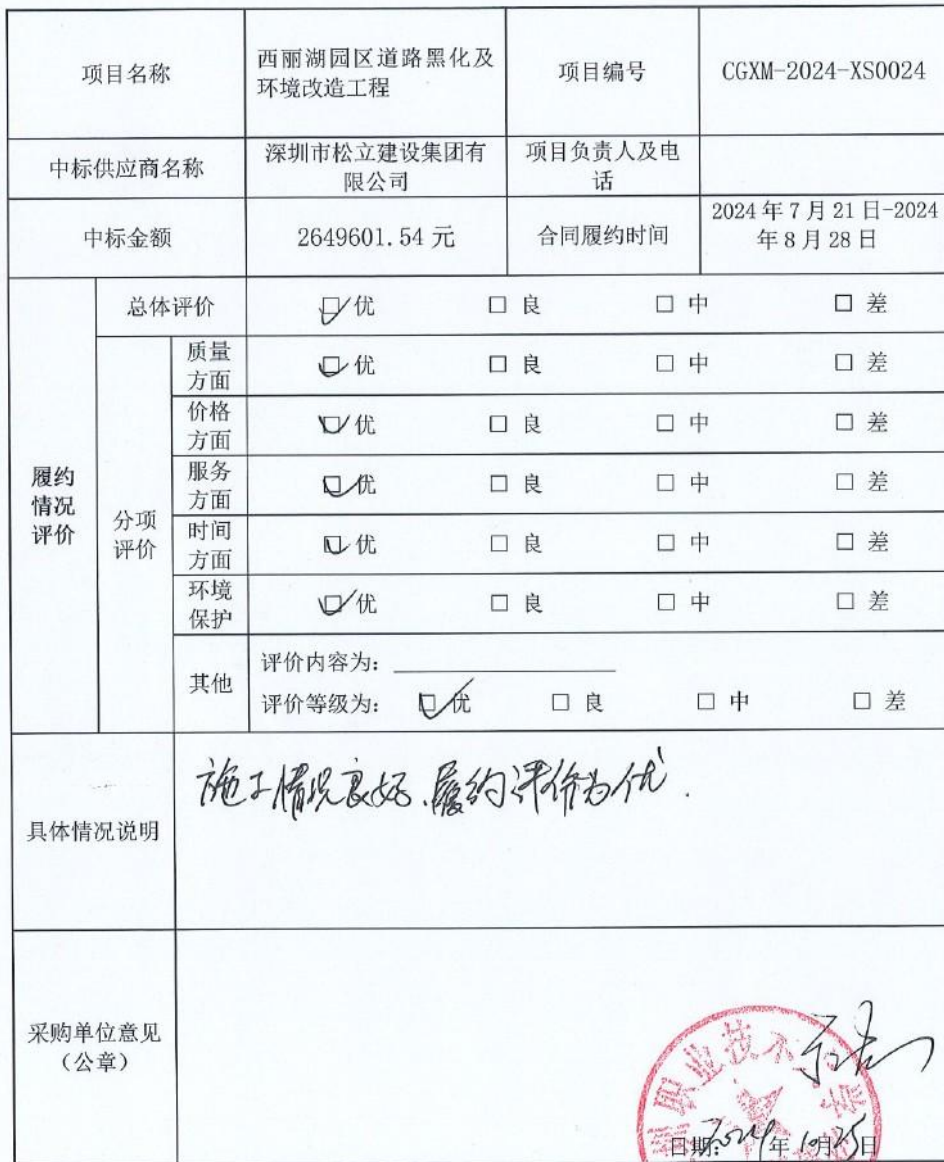 项目名称
西丽湖园区道路黑化及
环境改造工程
项目编号
CGXM-2024-XS0024
中标供应商名称
深圳市松立建设集团有
限公司
项目负责人及电
话
中标金额
2649601.54 元
合同履约时间
2024 年 7 月 21 日-2024
年 8 月 28 日
履约
情况
评价
总体评价
☑ 优 □ 良 □ 中 □ 差
分项
评价
质量
方面
☑ 优 □ 良 □ 中 □ 差
价格
方面
☑ 优 □ 良 □ 中 □ 差
服务
方面
☑ 优 □ 良 □ 中 □ 差
时间
方面
☑ 优 □ 良 □ 中 □ 差
环境
保护
☑ 优 □ 良 □ 中 □ 差
其他
评价内容为:
评价等级为: ☑ 优 □ 良 □ 中 □ 差
具体情况说明
施工情况良好、履约评价为优.
采购单位意见
(公章)
职业技术
日期: 2024 年 10 月 25 日